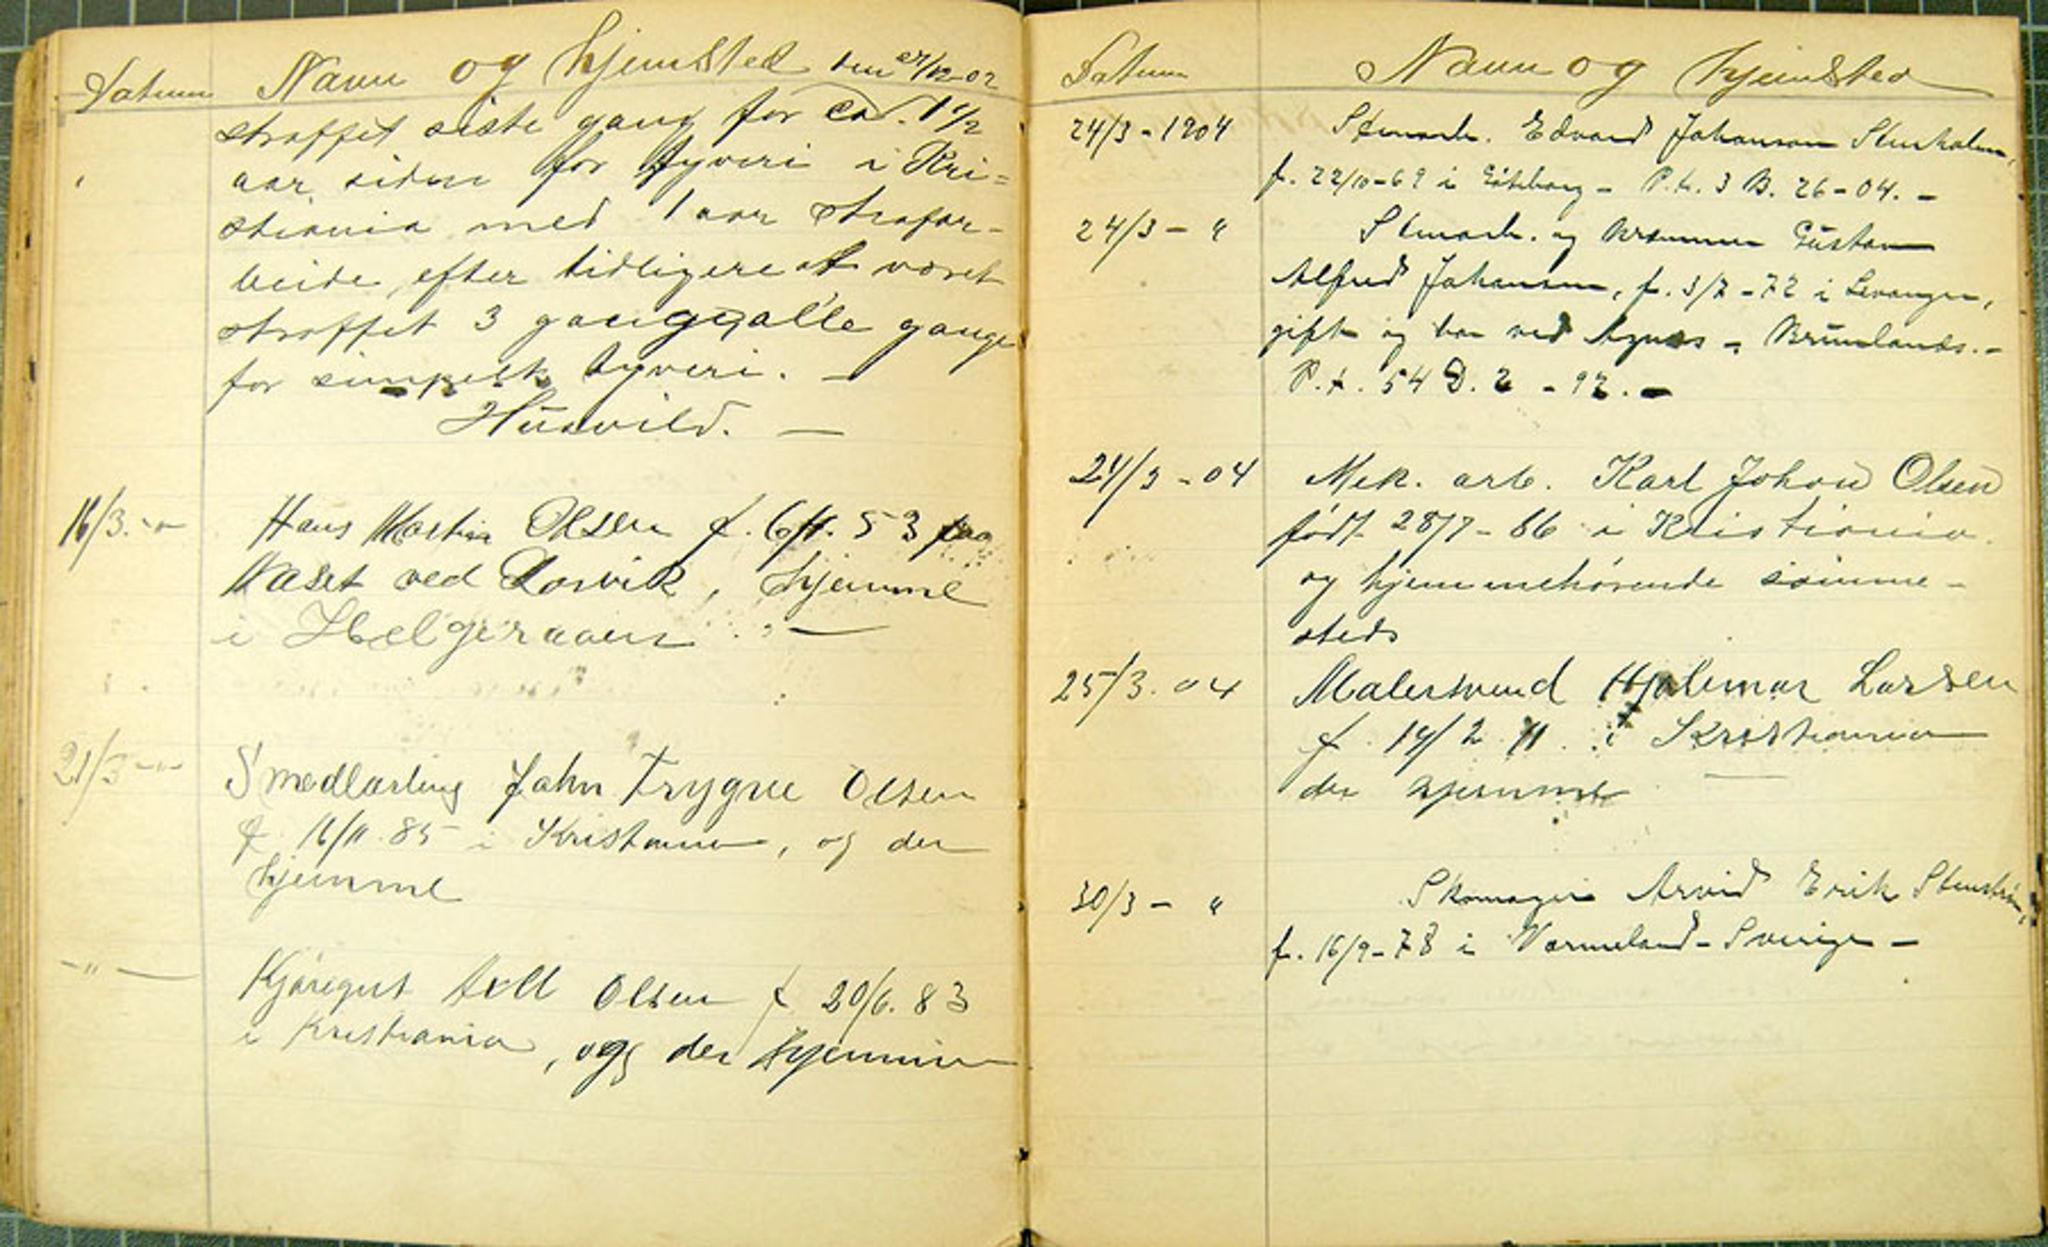 Datum Navn og hjemsted den 27/12-02
straffet siste gang for ca. 1 1/2
aar siden for tyveri i Kri=
stiania med 1 aar strafar-
beide, efter tidligere at været
straffet 3 gange, alle gange
for simpelt tyveri. —
Husvild. —
16/3. -"- Hans Martin Olsen f. 6/11. 53 paa
Næset ved Larvik, hjemme
i Helgeraaen. —
21/3 -"- Smedlærling John Trygve Olsen
f. 16/11. 85 i Kristiania, og der
hjemme
-"- Kjøregut Axel Olsen f. 20/6. 83
i Kristiania, og der hjemme
Datum Navn og hjemsted
24/3 - 1904 Stenarb. Edvard Johanson Stenholm,
f. 22/10-69 i Göteborg - P.t. 3 B. 26-04. -
24/3 - " Stenarb. og Kræmmer Gustav
Alfred Johansen, f. 3/7-72 i Levanger,
gift og bor ved Agnes - Brunlanes. -
P.t. 54 D. 2 - 92. -
24/3 - 04 Mek. arb. Karl Johan Olsen
født 28/7-86 i Kristiania
og hjemmehørende samme-
steds
25/3. 04 Malersvend Hjalmar Larsen
f. 14/2 71. i Kristiania
der hjemme —
30/3 - " Skomager Arvid Erik Stenström,
f. 16/9-78 i Varmeland - Sverige -